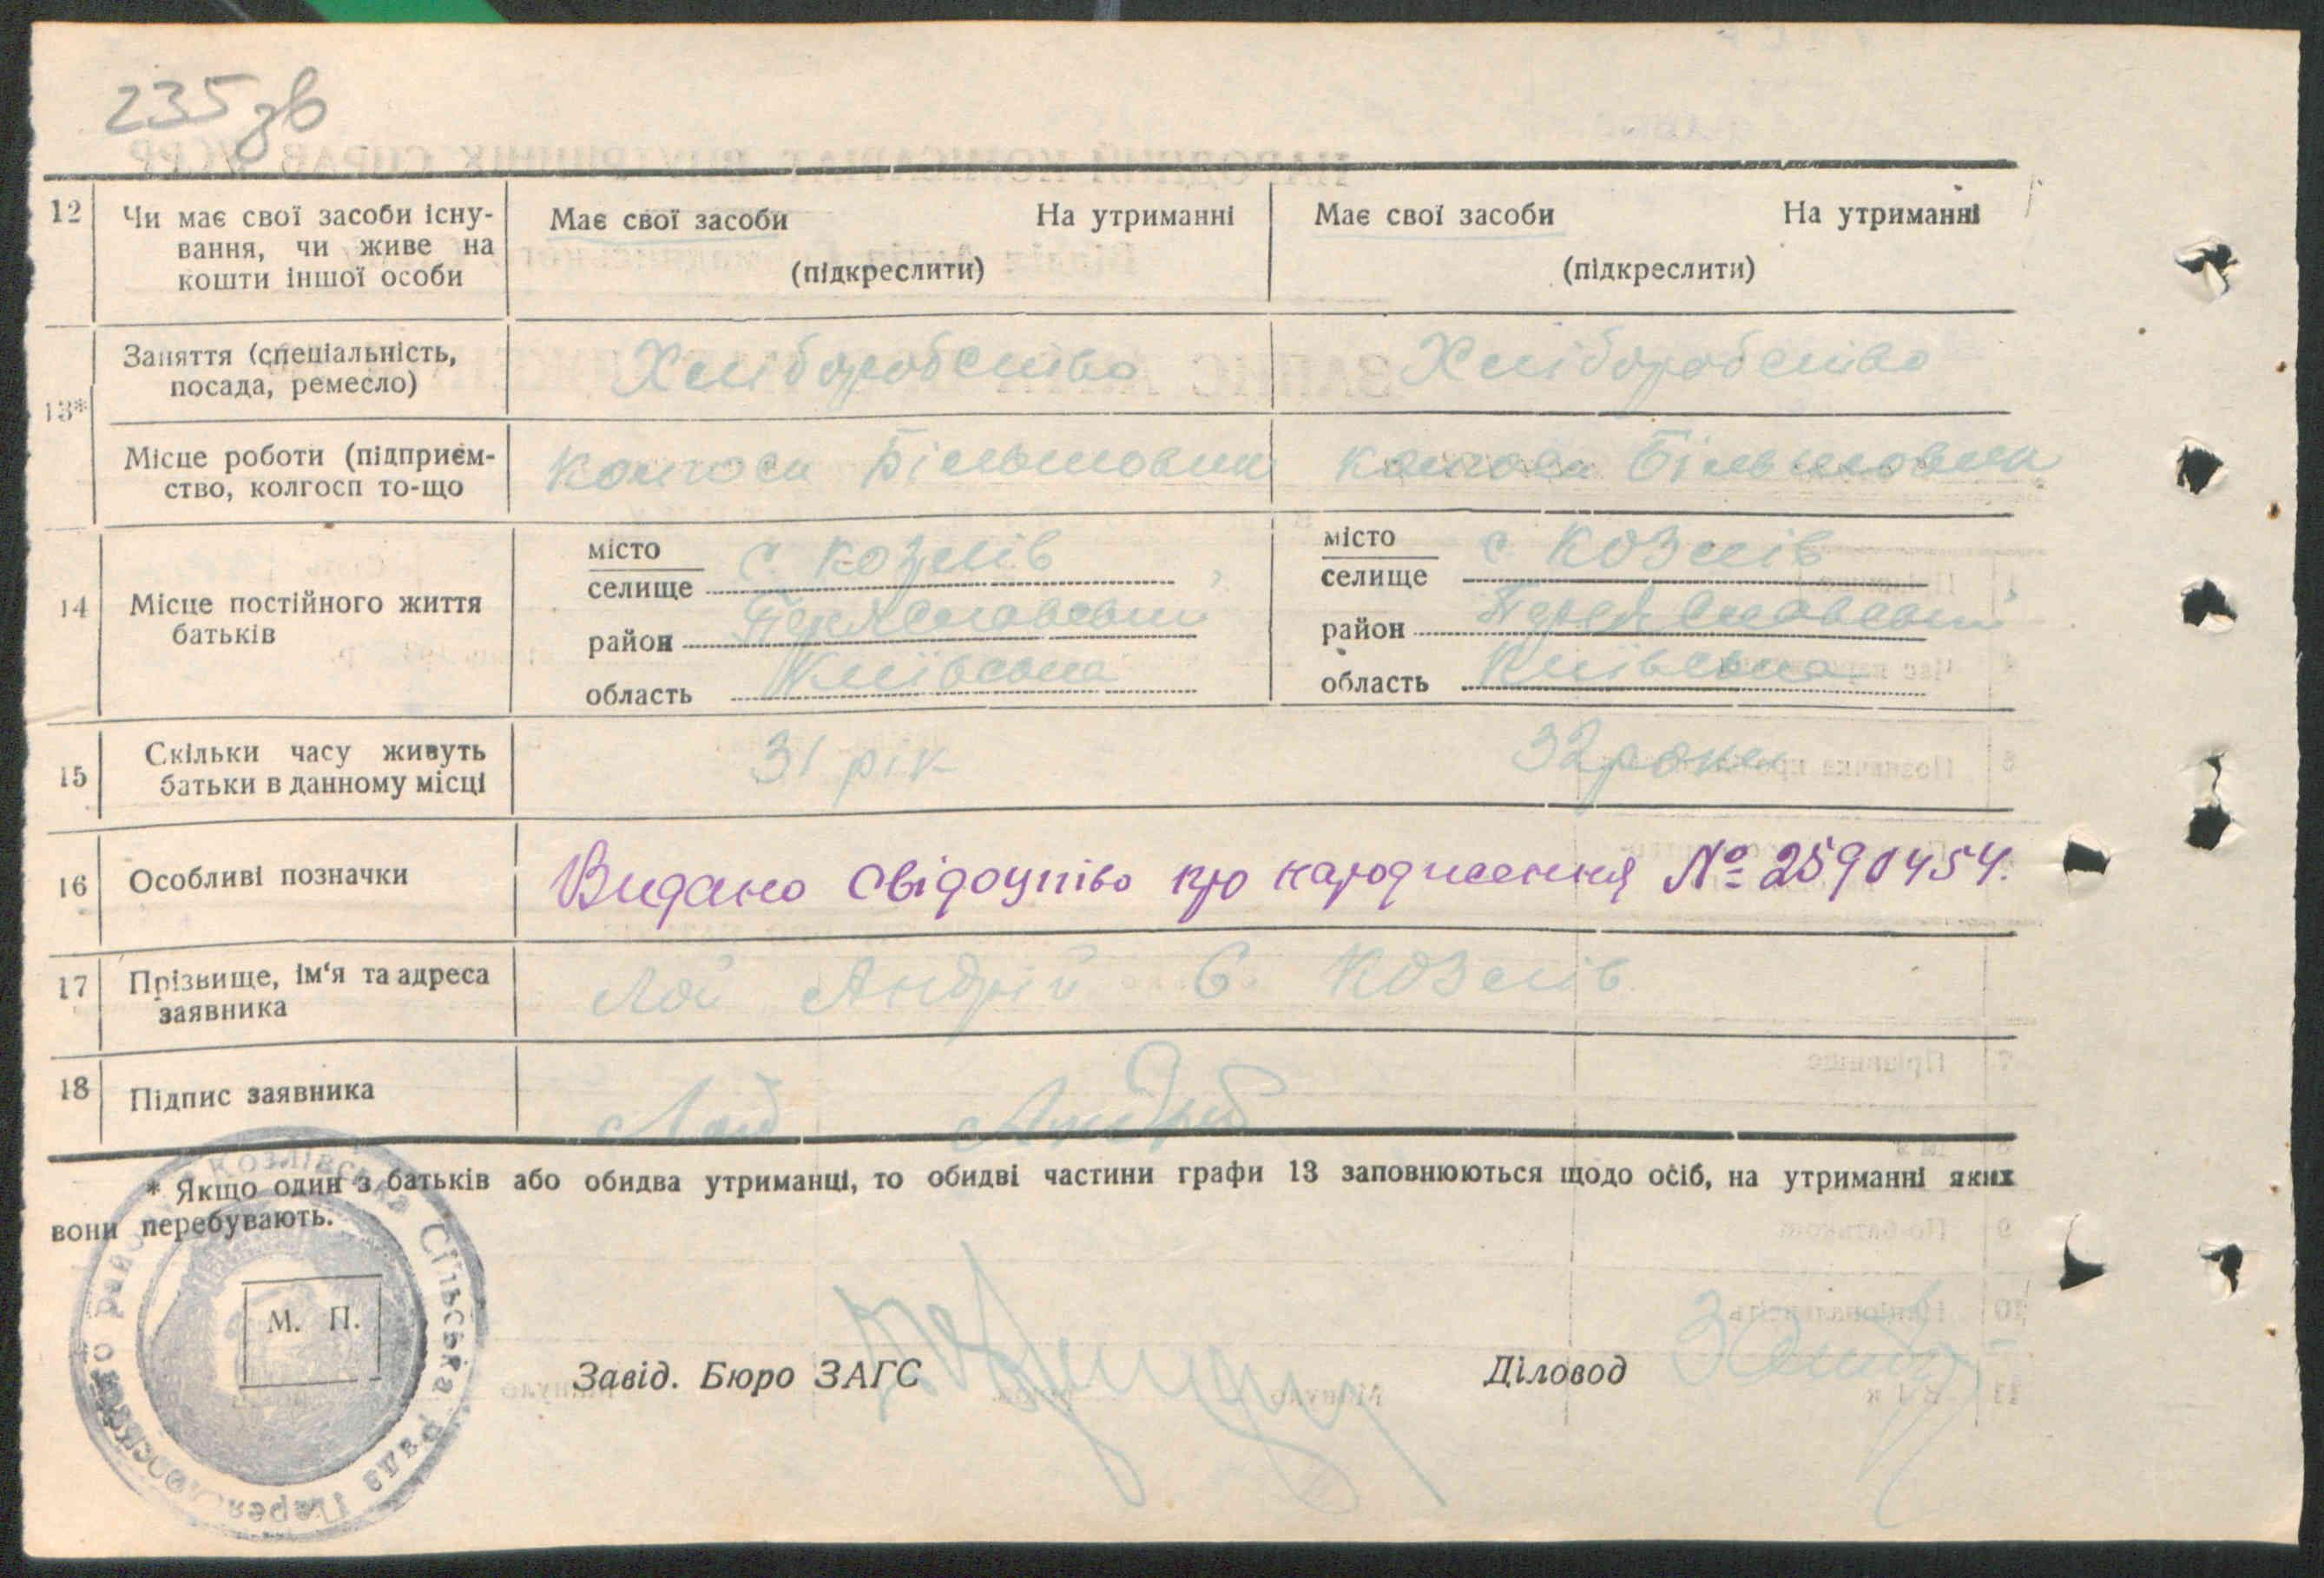 235 зв
12 Чи має свої засоби існу- Має свої засоби На утриманні Має свої засоби На утриманні
вання, чи живе на
кошти іншої особи (підкреслити) (підкреслити)
Заняття (спеціальність, Хліборобство Хліборобство
посада, ремесло)
13*
Місце роботи (підприєм- Колгосп Більшовик Колгосп Більшовик
ство, колгосп то-що
місто с. Козлів місто с Козлів
селище селище
14 Місце постійного життя
батьків район Переяславський район Переяславський
область Київська область Київська
15 Скільки часу живуть 31 рік 32 роки
батьки в данному місці
16 Особливі позначки Видано свідоцтво про народження № 2590454.
17 Прізвище, ім'я та адреса Лой Андрій с Козлів
заявника
18 Підпис заявника Лой Андрій
* Якщо один з батьків або обидва утриманці, то обидві частини графи 13 заповнюються щодо осіб, на утриманні яких
вони перебувають.
Козлівська Сільська рада Переяславського району
М. П.
Завід. Бюро ЗАГС Діловод